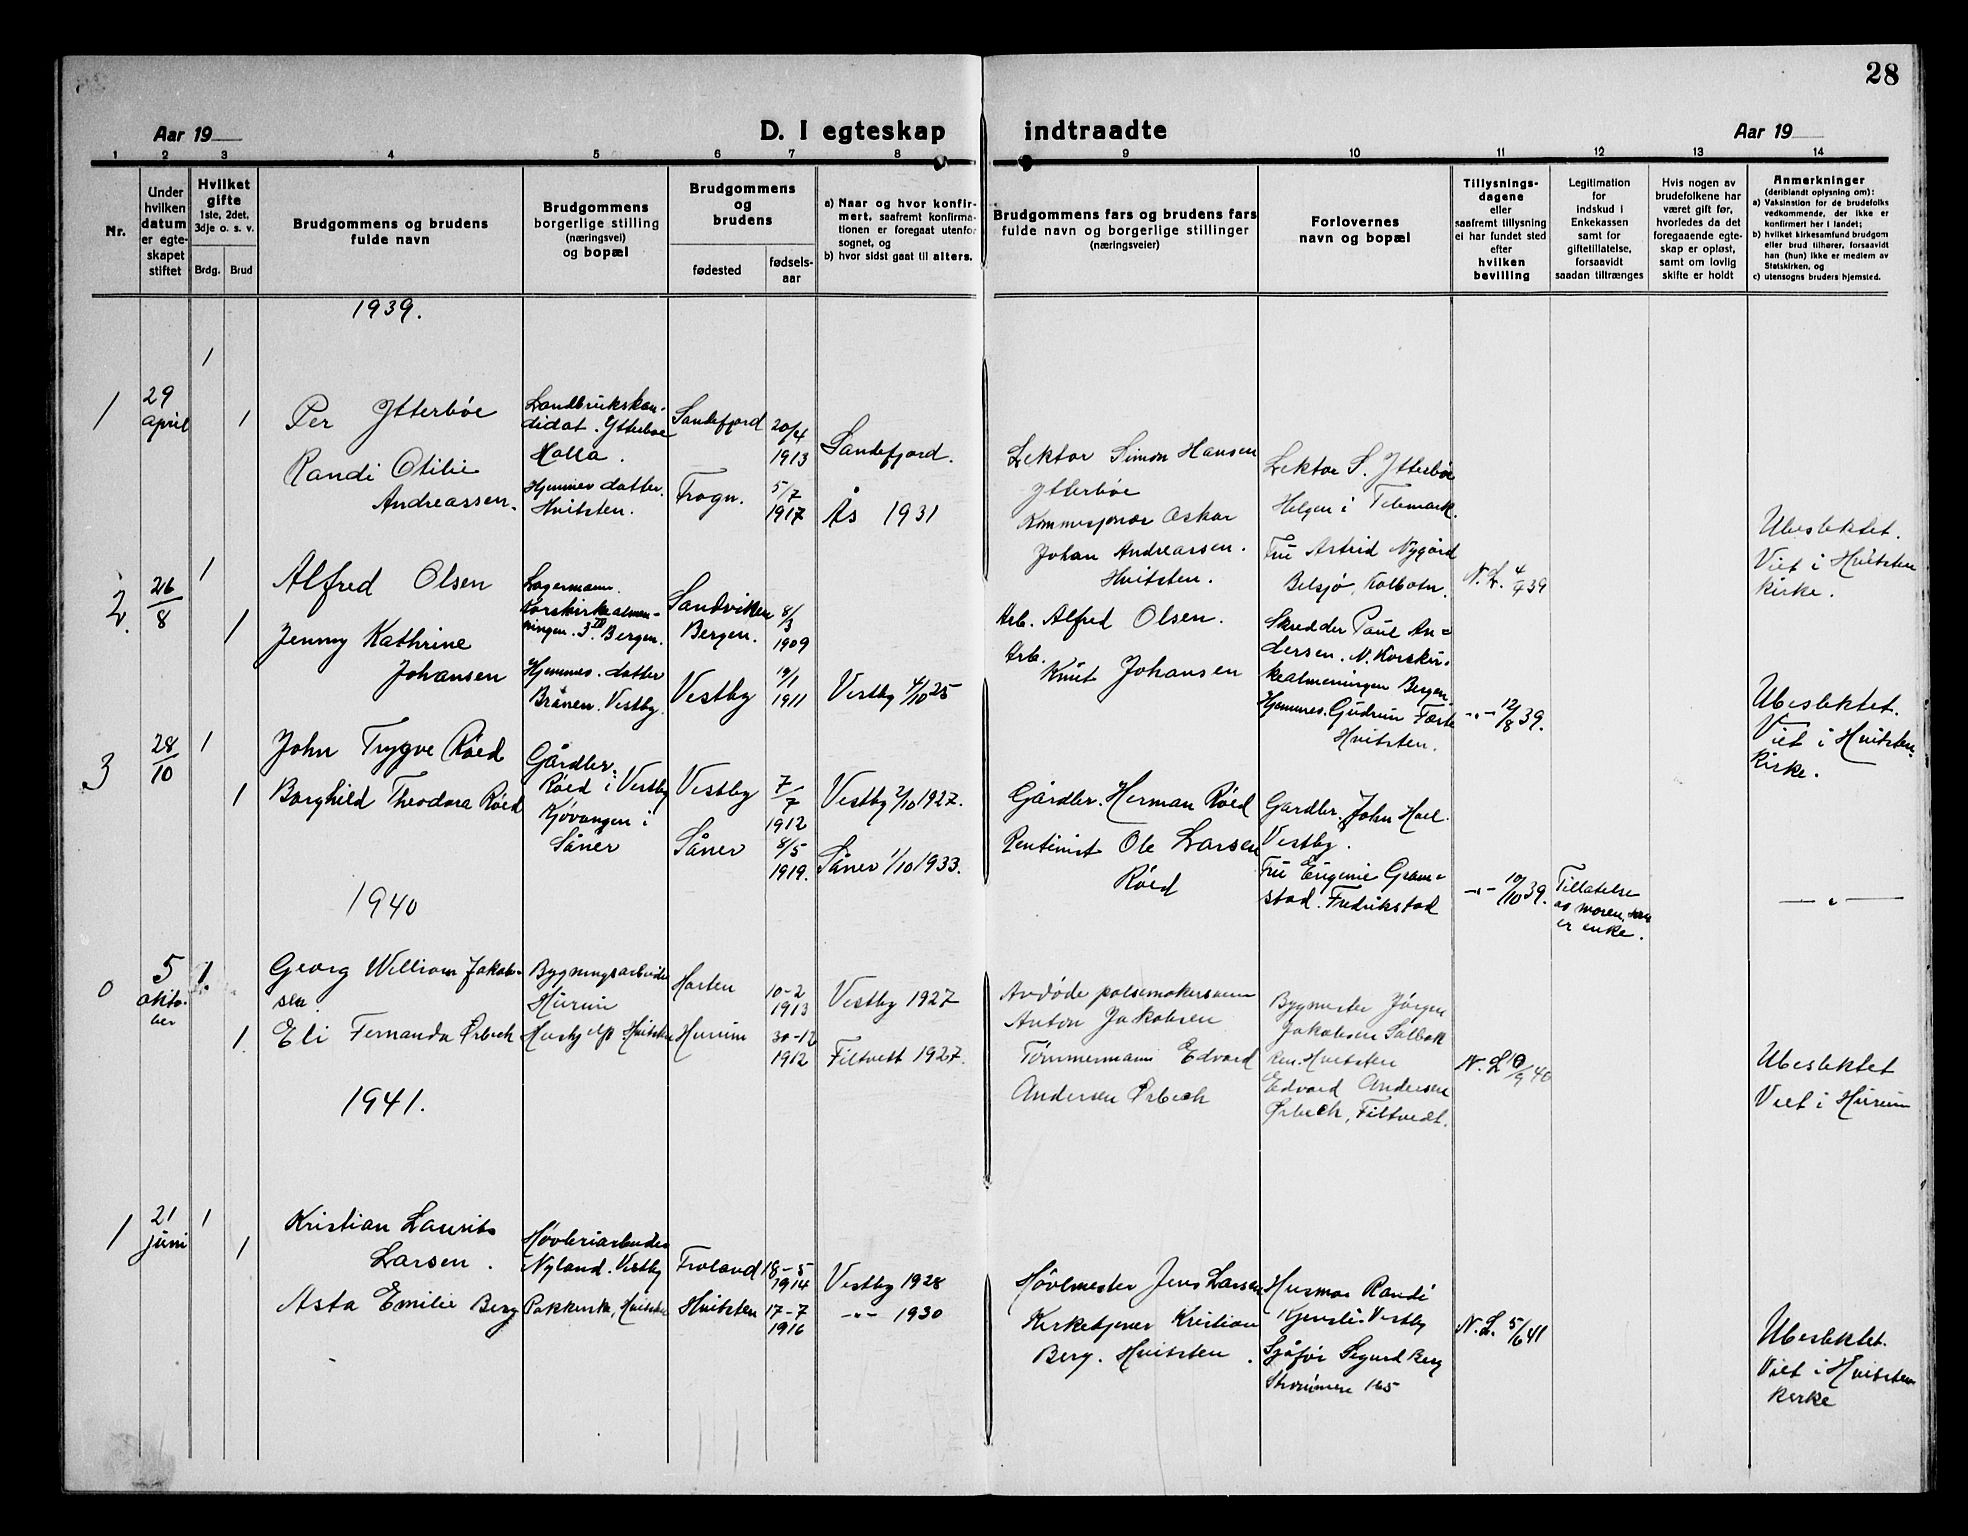 28
Aar 19
D. I egteskap indtraadte
Aar 19
1 2 3 4 5 6 7 8 9 10 11 12 13 14
Nr.
Under
hvilken
datum
er egte-
skapet
stiftet
Hvilket
gifte
1ste, 2det,
3dje o. s. v.
Brdg. Brud
Brudgommens og brudens
fulde navn
Brudgommens
borgerlige stilling
(næringsvei)
og bopæl
Brudgommens
og
brudens
fødested
fødsels-
aar
a) Naar og hvor konfir-
mert, saafremt konfirma-
tionen er foregaat utenfor
sognet, og
b) hvor sidst gaat til alters.
Brudgommens fars og brudens fars
fulde navn og borgerlige stillinger
(næringsveier)
Forlovernes
navn og bopæl
Tillysnings-
dagene
eller
saafremt tillysning
ei har fundet sted
efter
hvilken
bevilling
Legitimation
for
indskud i
Enkekassen
samt for
giftetillatelse,
forsaavidt
saadan tiltrænges
Hvis nogen av
brudefolkene har
været gift før,
hvorledes da det
foregaaende egte-
skap er opløst,
samt om lovlig
skifte er holdt
Anmerkninger
(deriblandt oplysning om):
a) Vaksinstion for de brudefolks
vedkommende, der ikke er
konfirmert her i landet;
b) hvilket kirkesamfund brudgom
eller brud tilhører, forsaavidt
han (hun) ikke er medlem av
Statskirken, og
c) utensogns bruders hjemsted.
1939.
1
29
april
1
1
Per Ytterbøe
Randi Otilie
Andreassen.
Landbrukskan-
didat. Ytterbøe
Holla.
Hjemmev. datter.
Hvitsten.
Sandefjord
Trogn.
20/4
1913
5/7
1917
Sandefjord.
Ås 1931
Lektor Simon Hansen
Ytterbøe
Kommisjonær Oskar
Johan Andreassen.
Hvitsten.
Lektor S. Ytterbøe
Helgen i Telemark.
Fru Astrid Nygård
Belsjø, Kolbotn.
N. L. 4/4 39
Ubeslektet.
Viet i Hvitsten
kirke.
2.
26/8
1
1
Alfred Olsen
Jenny Kathrine
Johansen
Lagermann.
Korskirkealmen-
ningen. 3 III Bergen.
Hjemmev. datter
Brånen. Vestby.
Sandviken
Bergen.
Vestby
8/3
1909
19/1
1911
Vestby 4/10 25
Arb. Alfred Olsen.
Arb.
Knut Johansen
Skredder Paul An=
dersen. N. Korskir-
kealmeningen Bergen.
Hjemmev. Gudrun Færte
Hvitsten.
-"- 12/8 39.
Ubeslektet.
Viet i Hvitsten
kirke.
3
28/10
1
1
John Trygve Røed
Borghild Theodora Røed
Gårdbr.
Røed i Vestby
Kjøvangen i
Såner
Vestby
Såner
7/7
1912
8/5
1919.
Vestby 2/10 1927.
Såner 1/10 1933.
Gårdbr. Herman Røed
Rentinist Ole Larsen
Røed
Gardbr. John Hoel
Vestby.
Fru Eugenie Gram-
stad. Fredrikstad
-"- 10/10 39.
Tillatelse
av moren, som
er enke.
— " —
1940
0
5
okto-
ber
1.
1.
Georg William Jakob-
sen
Eli Fernanda Ørbech
Bygningsarbeider
Hurum
Hushjelp Hvitsten
Horten
Hurum
10-2
1913
30-12
1912
Vestby 1927
Filtvett 1927.
Avdøde pølsemakersvenn
Anton Jakobsen
Tømmermann Edvard
Andersen Ørbech
Bygmester Jørgen
Jakobsen Solbak
ken. Hvitsten
Edvard Andersen
Ørbech, Filtvedt.
N. L. 10/9 40
Ubeslektet
Viet i Hurum
1941.
1
21
juni
1
1
Kristian Laurits
Larsen.
Asta Emilie Berg
Høvleriarbeider
Nyland. Vestby
Pakkerske, Hvitsten
Froland
Hvitsten
18-5
1914
17-7
1916
Vestby 1928
-"- 1930
Høvlmester Jens Larsen
Kirketjener Kristian
Berg. Hvitsten.
Husmor Randi
Kjensli. Vestby
Sjåfør Sigurd Berg
Strømmen 165
N. L. 5/6 41
Ubeslektet.
Viet i Hvitsten
kirke